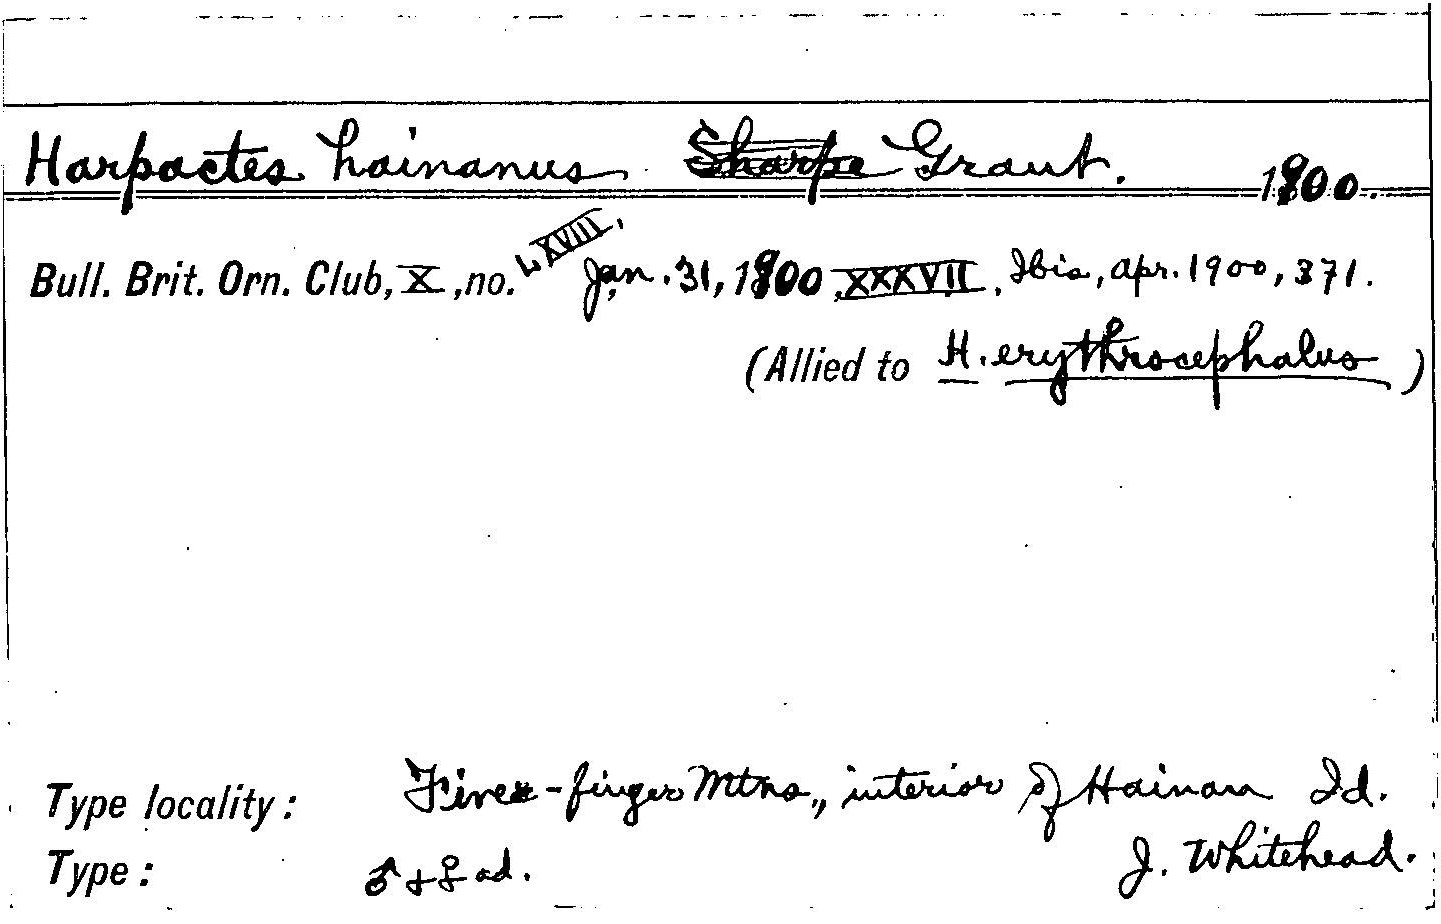 Harpactes hainanus Sharpe Grant. 1900.
Bull. Brit. Orn. Club, X, no. LXVIII, Jan. 31, 1900, XXXVII, Ibis, Apr. 1900, 371.
(Allied to H. erythrocephalus)
Type locality: Five-finger Mtns., interior of Hainan Id.
J. Whitehead.
Type: ♂ + ♀ ad.